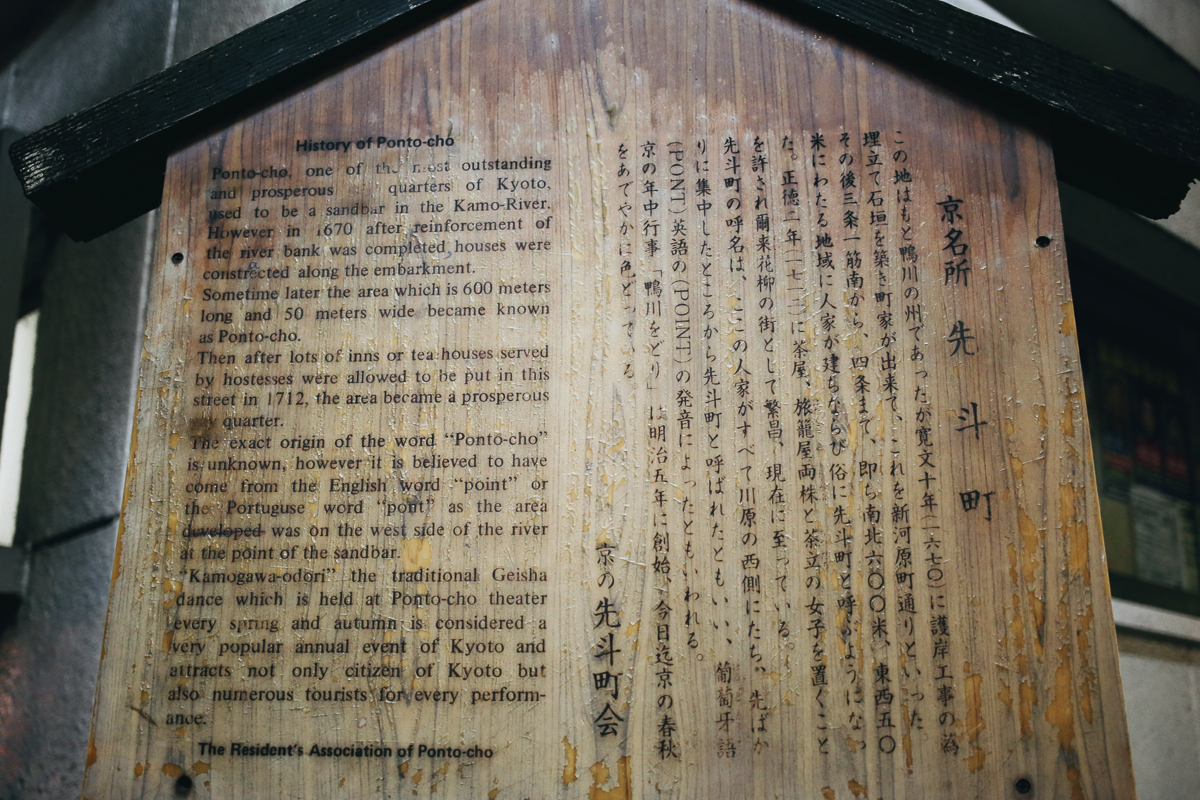 History of Ponto-cho
Ponto-cho, one of the most outstanding
and prosperous quarters of Kyoto,
used to be a sandbar in the Kamo-River.
However in 1670 after reinforcement of
the river bank was completed houses were
constructed along the embarkment.
Sometime later the area which is 600 meters
long and 50 meters wide became known
as Ponto-cho.
Then after lots of inns or tea houses served
by hostesses were allowed to be put in this
street in 1712, the area became a prosperous
quarter.
The exact origin of the word “Ponto-cho”
is unknown, however it is believed to have
come from the English word “point” or
the Portuguse word “pont” as the area
duveloped was on the west side of the river
at the point of the sandbar.
“Kamogawa-odori” the traditional Geisha
dance which is held at Ponto-cho theater
every spring and autumn is considered a
very popular annual event of Kyoto and
attracts not only citizen of Kyoto but
also numerous tourists for every perform-
ance.
The Resident's Association of Ponto-cho
京名所 先斗町
この地はもと鴨川の州であったが寛文十年(一六七〇)に護岸工事の為
埋立て石垣を築き町家が出来て、これを新河原町通りといった
その後三条一筋南から、四条まで、即ち南北六〇〇米、東西五〇
米にわたる地域に人家が建ちならび俗に先斗町と呼ぶようになっ
た。正徳二年(一七一二)に茶屋、旅籠屋両株と茶立の女子を置くこと
を許され爾来花柳の街として繁昌、現在に至っている。
先斗町の呼名は、ここの人家がすべて川原の西側にたち、先ばか
りに集中したところから先斗町と呼ばれたともいい、葡萄牙語
(PONT)英語の(POINT)の発音によったともいわれる。
京の年中行事「鴨川をどり」は明治五年に創始、今日迄京の春秋
をあでやかに色どっている
京の先斗町会